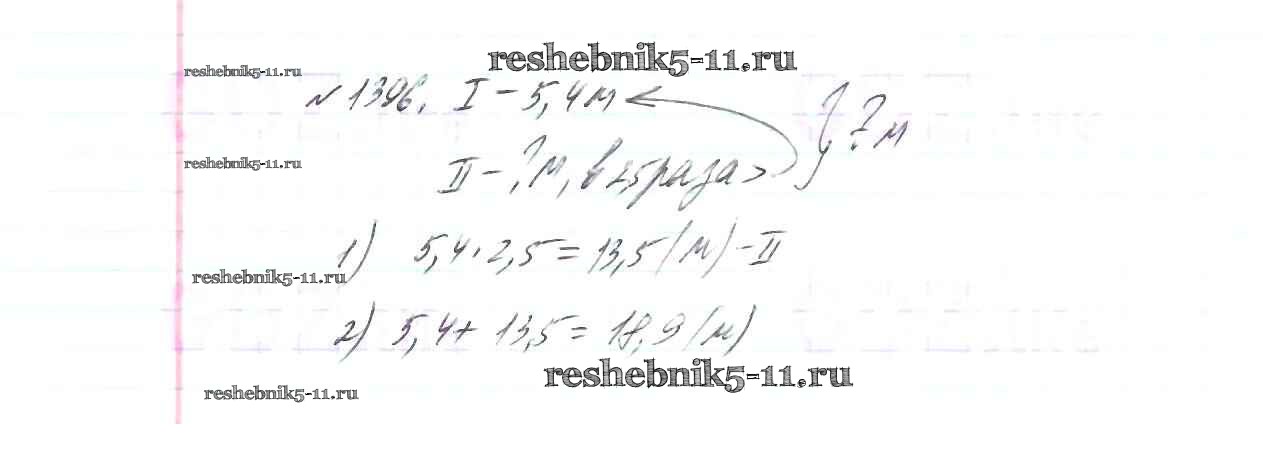 reshebnik5-11.ru
reshebnik5-11.ru
№ 1396. I - 5,4 м
} ? м
reshebnik5-11.ru
II - ? м, в 2,5 раза >
1) 5,4 · 2,5 = 13,5 (м) - II
reshebnik5-11.ru
2) 5,4 + 13,5 = 18,9 (м)
reshebnik5-11.ru
reshebnik5-11.ru